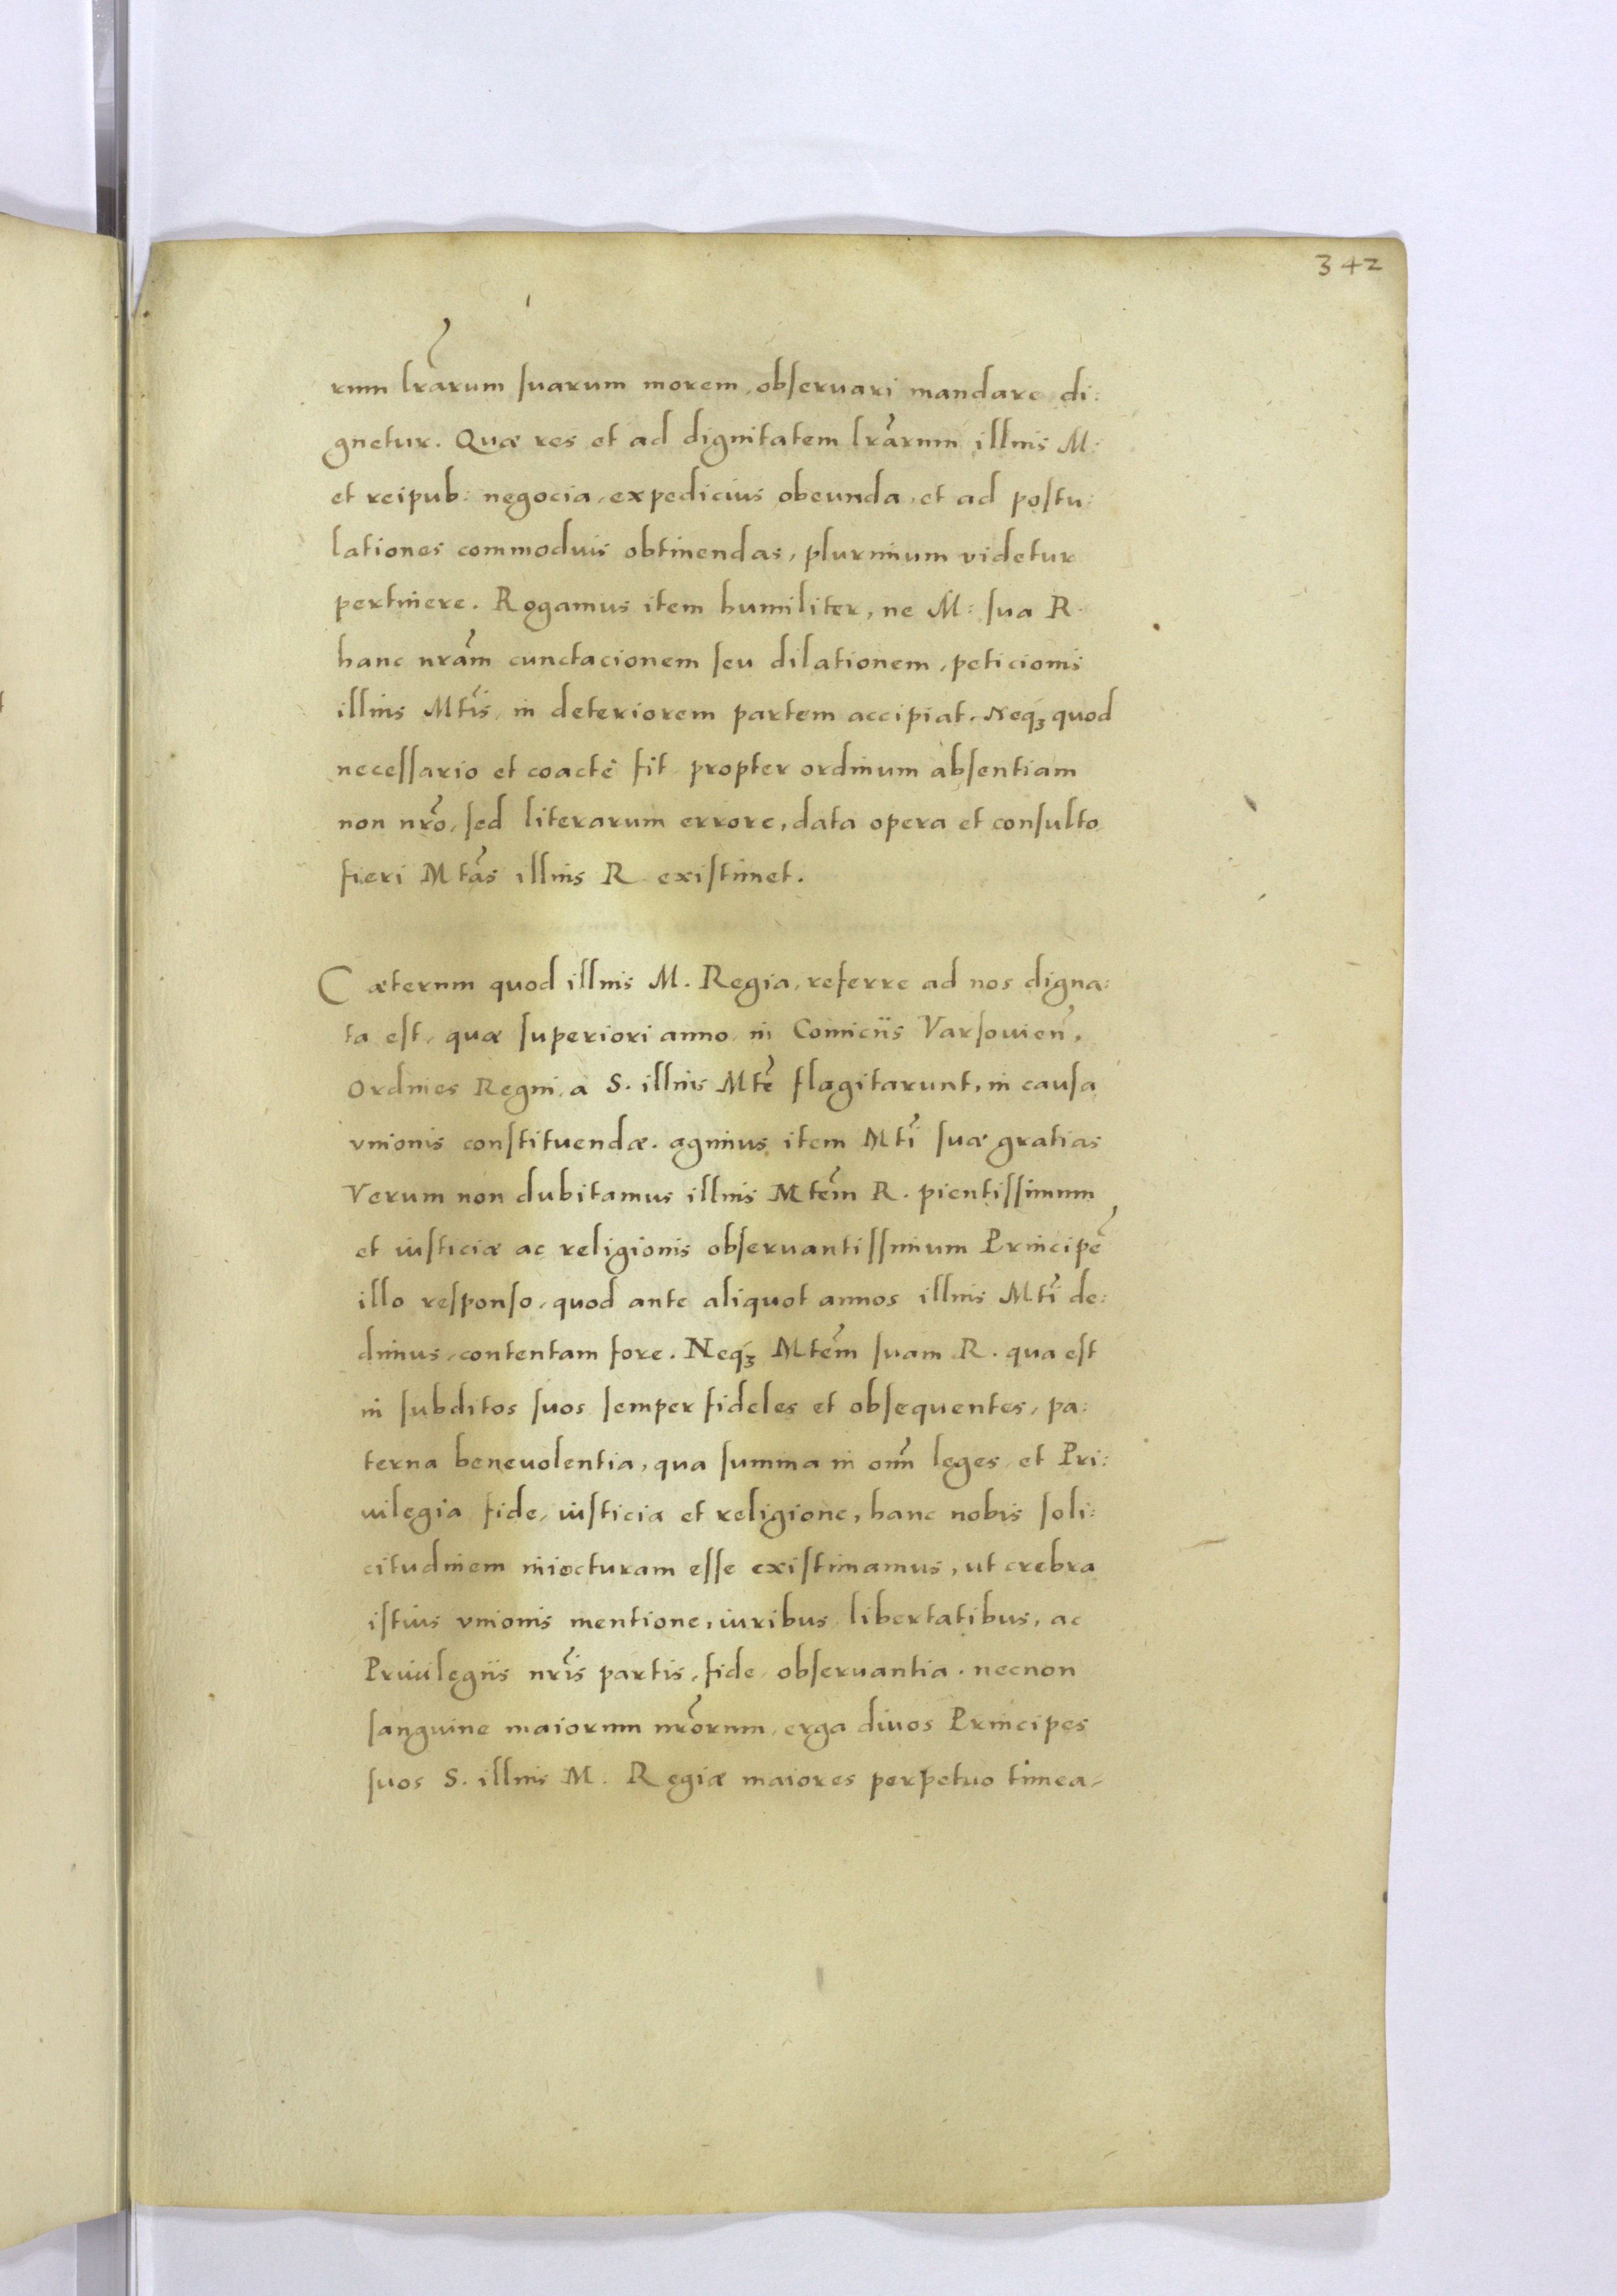 342
rum lr̃arum suarum morem, observari mandare di:
gnetur. Quæ res et ad dignitatem lr̃arum illius M:
et reipub: negocia, expedicius obeunda, et ad postu:
lationes commodius obtinendas, plurimum videtur
pertinere. Rogamus item humiliter, ne M: sua R.
hanc nr̃am cunctacionem seu dilationem, peticionis
illius Mtĩs, in deteriorem partem accipiat, Neqꝫ quod
necessario et coactè fit propter ordinum absentiam
non nr̃o, sed literarum errore, data opera et consulto
fieri Mtãs illius R. existimet.
Cæterum quod illius M. Regia, referre ad nos digna:
ta est, quæ superiori anno, in Comiciis Varsouieñ,
Ordines Regni, a S. illius Mtẽ flagitarunt, in causa
vnionis constituendæ. agimus item Mtĩ suæ gratias
Verum non dubitamus illius Mtẽm R. pientissimum
et iusticiæ ac religionis obseruantissimum Principẽ
illo responso, quod ante aliquot annos illius Mtĩ de:
dimus, contentam fore. Neqꝫ Mtẽm suam R. qua est
in subditos suos semper fideles et obsequentes, pa:
terna beneuolentia, qua summa in om̃ leges, et Pri:
uilegia fide, iusticia et religione, hanc nobis soli:
citudinem iniecturam esse existimamus, ut crebra
istius vnionis mentione, iuribus libertatibus, ac
Priuilegiis nr̃is partis, fide, obseruantia. necnon
sanguine maiorum nr̃orum, erga diuos Principes
suos S. illius M. Regiæ maiores perpetuo timea,